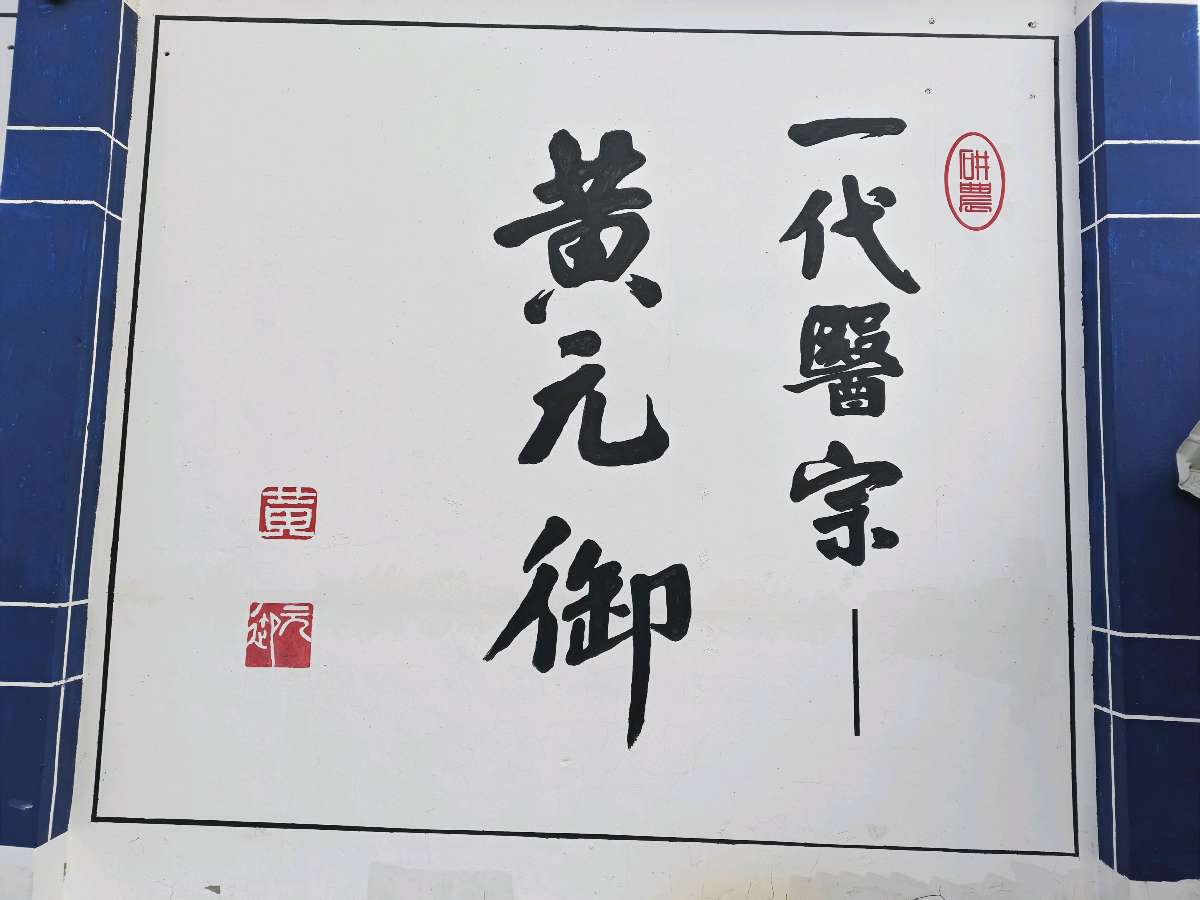 研農
一代醫宗——
黄元御
黄
元御